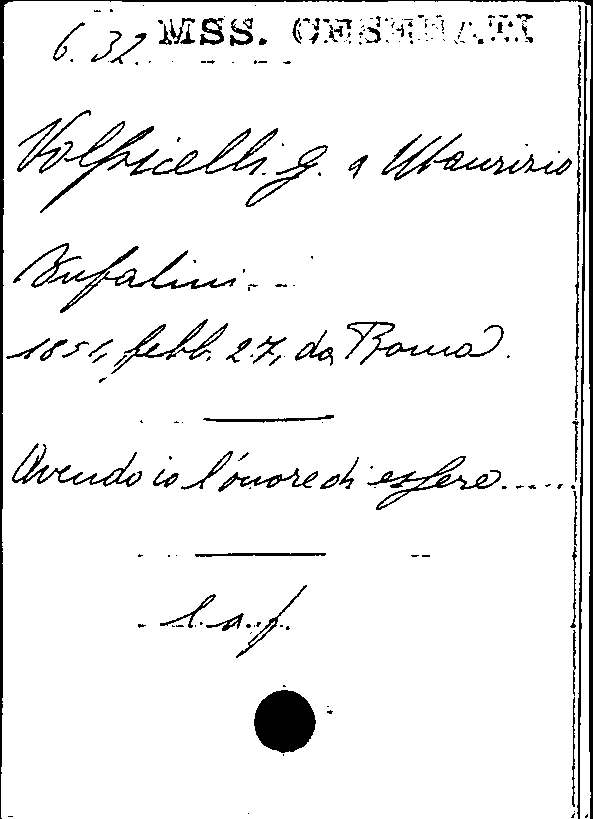 6. 32. MSS. CESENATI
Volpicelli. G. a Maurizio
Bufalini
1851, febb. 27, da Roma.
Avendo io l'onore di essere......
l. a. f.